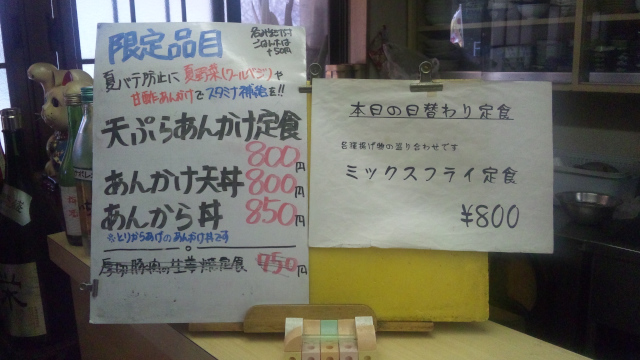 限定品目
ごはん大は
+50円
夏バテ防止に 夏野菜(クールベジ)や
甘酢あんかけでスタミナ補給を!!
天ぷらあんかけ定食
800円
あんかけ天丼 800円
あんから丼 850円
※とりからあげのあんかけ丼です
厚切豚肉の生姜焼定食 750円
本日の日替わり定食
各種揚げ物の盛り合わせです
ミックスフライ定食
¥800